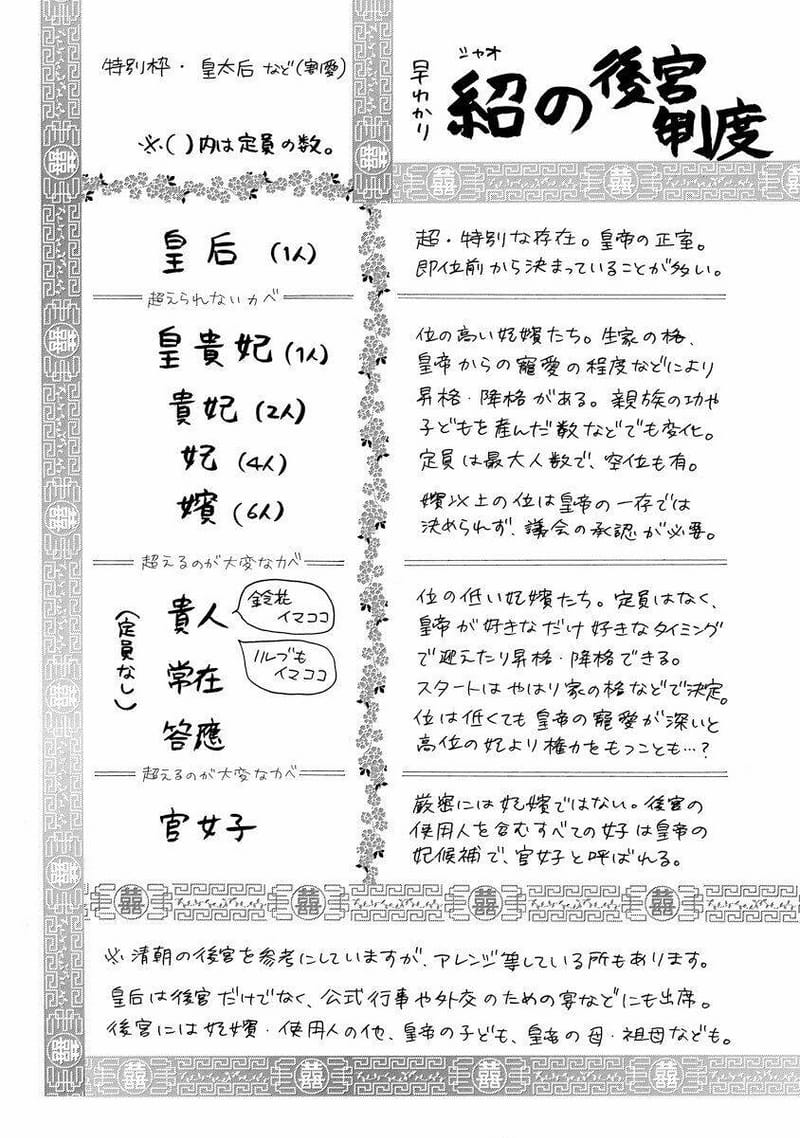 特別枠・皇太后 など(割愛)
※( )内は定員の数。
早わかり
シャオ
紹の後宮
制度
皇后 (1人)
超・特別な存在。皇帝の正室。
即位前から決まっていることが多い。
超えられないカベ
皇貴妃(1人)
貴妃(2人)
妃(4人)
嬪(6人)
位の高い妃嬪たち。生家の格、
皇帝からの寵愛の程度などにより
昇格・降格がある。親族の功や
子どもを産んだ数などでも変化。
定員は最大人数で、空位も有。
嬪以上の位は皇帝の一存では
決められず、議会の承認が必要。
超えるのが大変なカベ
(定員なし)
貴人
鈴花
イマココ
常在
ルブも
イマココ
答應
位の低い妃嬪たち。定員はなく、
皇帝が好きなだけ好きなタイミング
で迎えたり昇格・降格できる。
スタートはやはり家の格などで決定。
位は低くても皇帝の寵愛が深いと
高位の妃より権力をもつことも…?
超えるのが大変なカベ
官女子
厳密には妃嬪ではない。後宮の
使用人を含むすべての女子は皇帝の
妃候補で、官女子と呼ばれる。
※清朝の後宮を参考にしていますが、アレンジ等している所もあります。
皇后は後宮だけでなく、公式行事や外交のための宴などにも出席。
後宮には妃嬪・使用人の他、皇帝の子ども、皇帝の母・祖母なども。